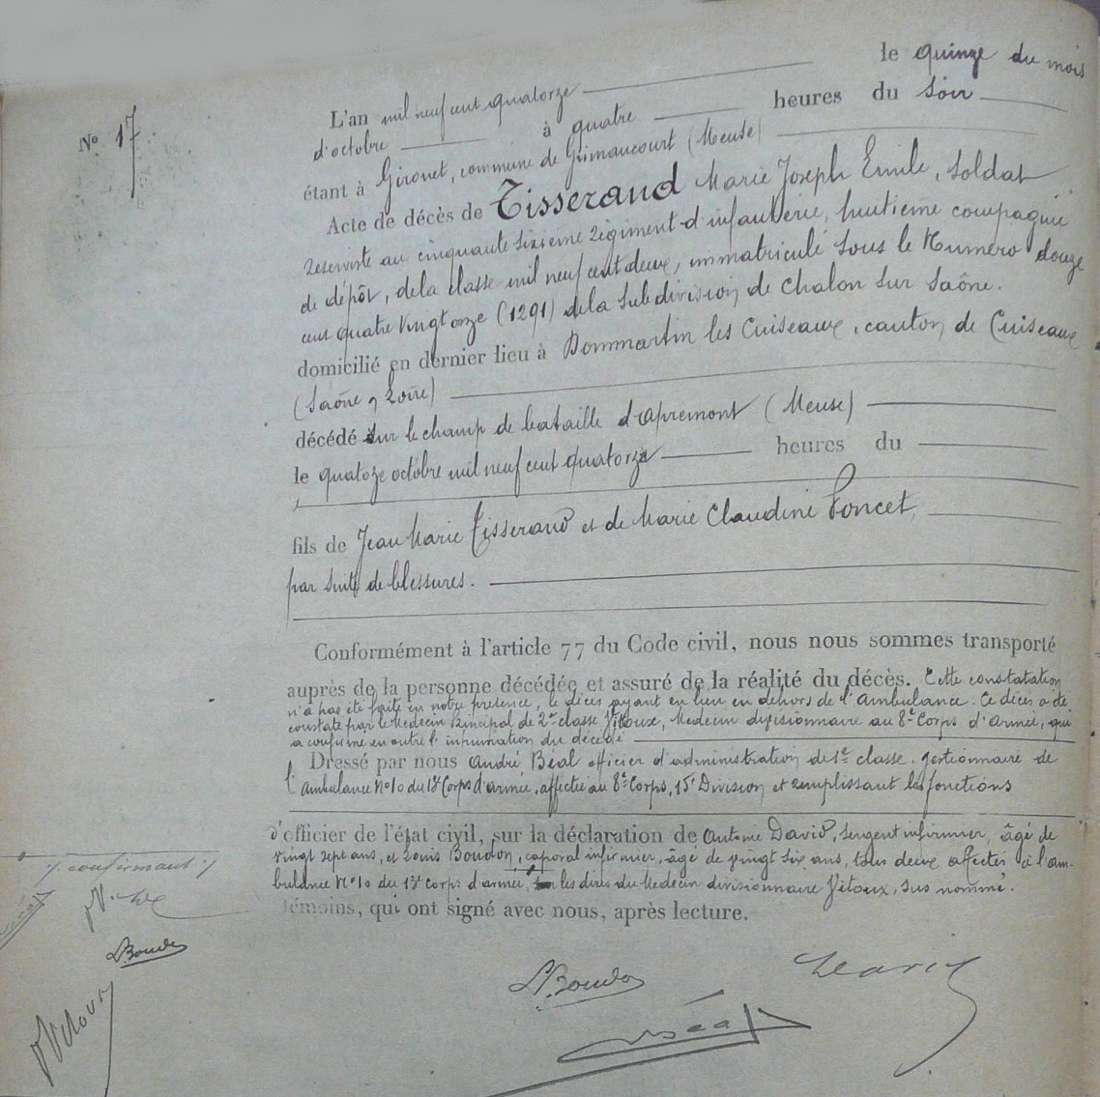 le quinze du mois
N° 17
L'an mil neuf cent quatorze
d'octobre à quatre heures du soir
étant à Gironet, commune de Grimaucourt (Meuse)
Acte de décès de Tisserand Marie Joseph Emile, soldat
reserviste au cinquante sixieme régiment d'infanterie, huitième compagnie
de dépôt, de la classe mil neuf cent deux, immatriculé sous le Numéro douze
cent quatre vingt onze (1291) de la subdivision de Chalon sur Saône.
domicilié en dernier lieu à Dommartin les Cuiseaux, canton de Cuiseaux
(Saône & Loire)
décédé sur le champ de bataille d'Apremont (Meuse)
le quatoze octobre mil neuf cent quatorze heures du
fils de Jean Marie Tisserand et de Marie Claudine Poncet
par suite de blessures.
Conformément à l'article 77 du Code civil, nous nous sommes transporté
auprès de la personne décédée et assuré de la réalité du décès. Cette constatation
n'a pas été faite en notre présence, le décès ayant eu lieu en dehors de l'ambulance. Ce décès a été
constaté par le Médecin principal de 2e classe Vitoux, Médecin divisionnaire au 8e Corps d'armée, qui
a confirmé en outre l'inhumation du décédé
Dressé par nous André Béal officier d'administration de 1e classe gestionnaire de
l'ambulance N°10 du 13e Corps d'armée, affectée au 8e Corps, 15e Division et remplissant les fonctions
d'officier de l'état civil, sur la déclaration de Antoine David, sergent infirmier, âgé de
vingt sept ans, et Louis Boudon, caporal infirmier, âgé de vingt six ans, tous deux affectés à l'am-
bulance N°10 du 13e Corps d'armée, les dires du Médecin divisionnaire Vitoux, sus nommé.
témoins, qui ont signé avec nous, après lecture.
confirmant
LBoudon
LBoudon
David
Béal
Vitoux